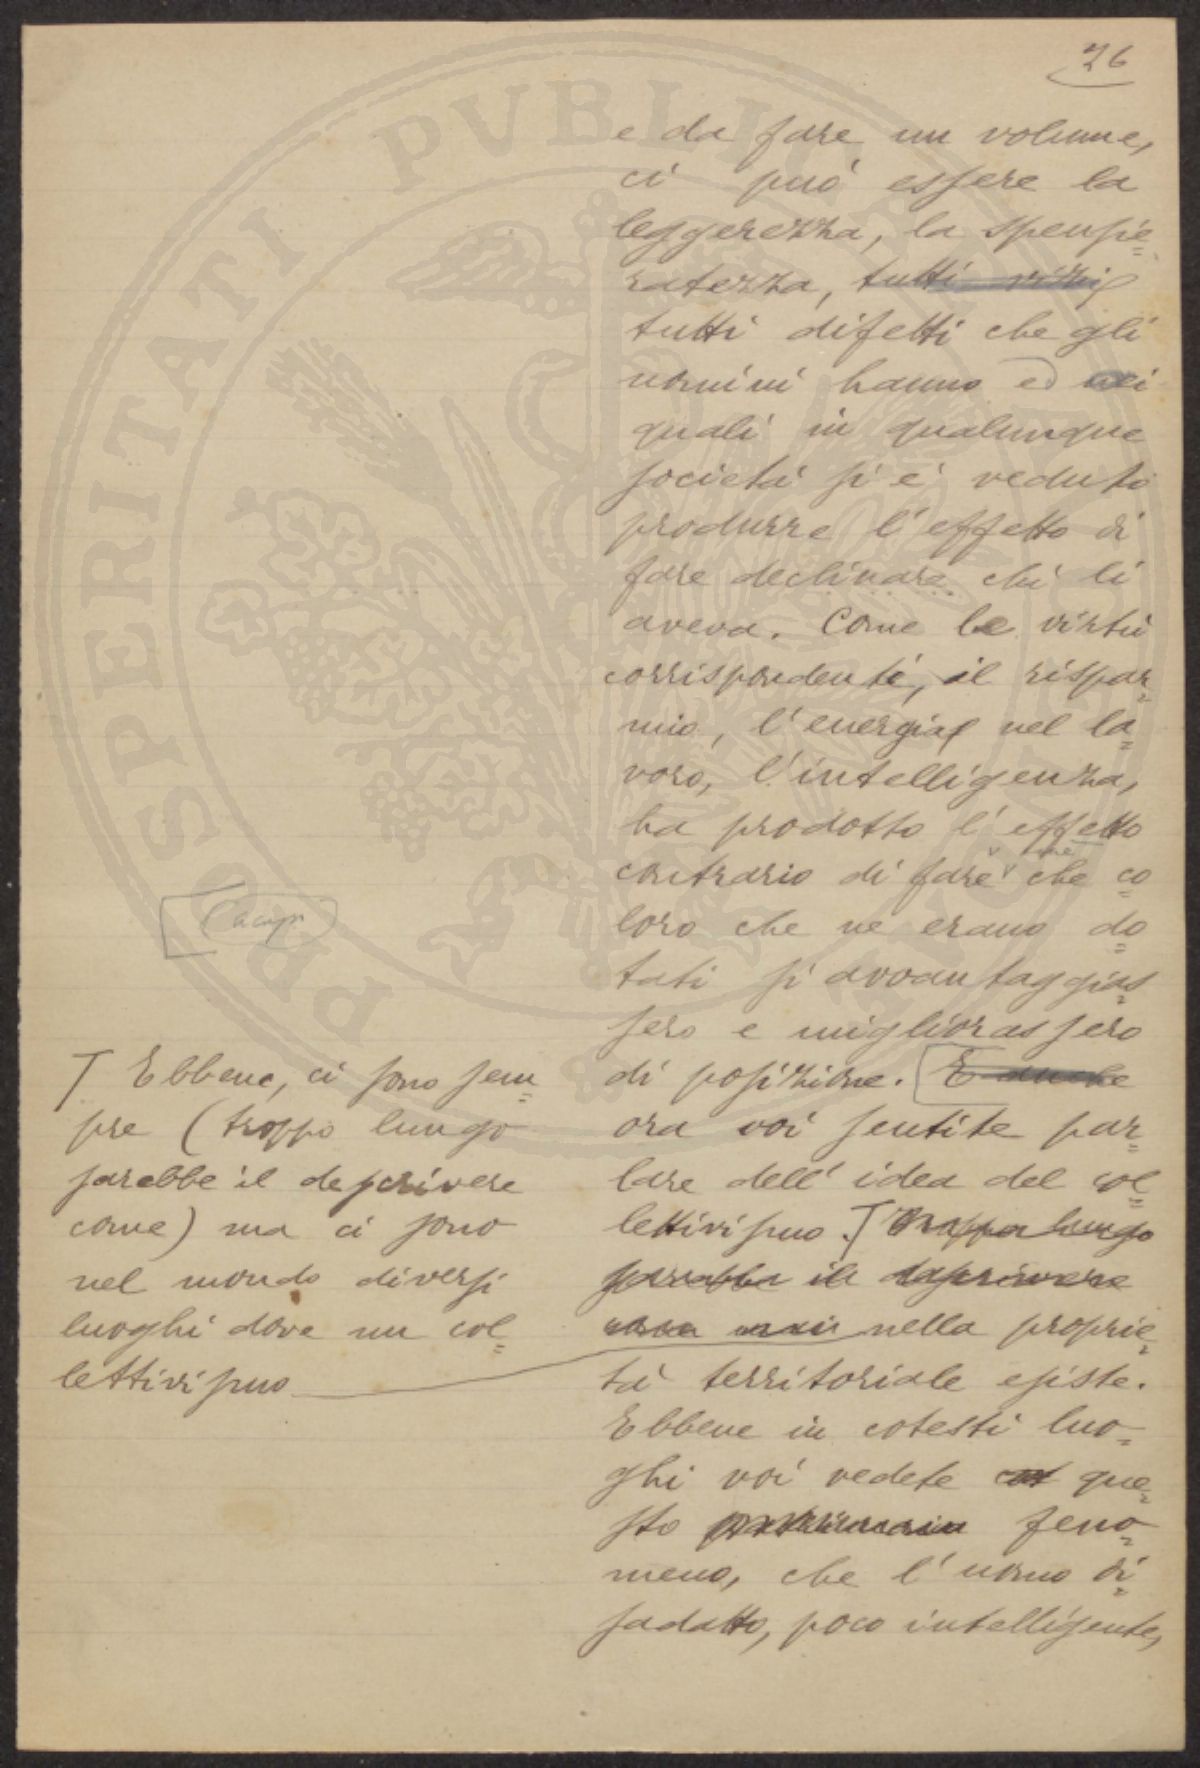 26
e da fare un volume,
ci può essere la
leggerezza, la spensie=
ratezza, tutti vizii
tutti difetti che gli
uomini hanno ed nei
quali in qualunque
società si è veduto
produrre l'effetto di
fare declinare chi li
aveva. Come le virtù
corrispondenti, il rispar=
mio, l'energia nel la=
voro, l'intelligenza,
ha prodotto l'effetto
contrario di fare che co=
loro che ne erano do=
tati si avvantaggias=
sero e migliorassero
di posizione. E anche
ora voi sentite par=
lare dell'idea del col=
lettivismo. T Troppo lungo
sarebbe il descrivere
nella proprie=
tà territoriale esiste.
Ebbene in cotesti luo=
ghi voi vedete que=
sto feno=
meno, che l'uomo di=
sadatto, poco intelligente,
T Ebbene, ci sono sem=
pre (troppo lungo
sarebbe il descrivere
come) ma ci sono
nel mondo diversi
luoghi dove un col=
lettivismo
PROSPERITATI PVBLICAE